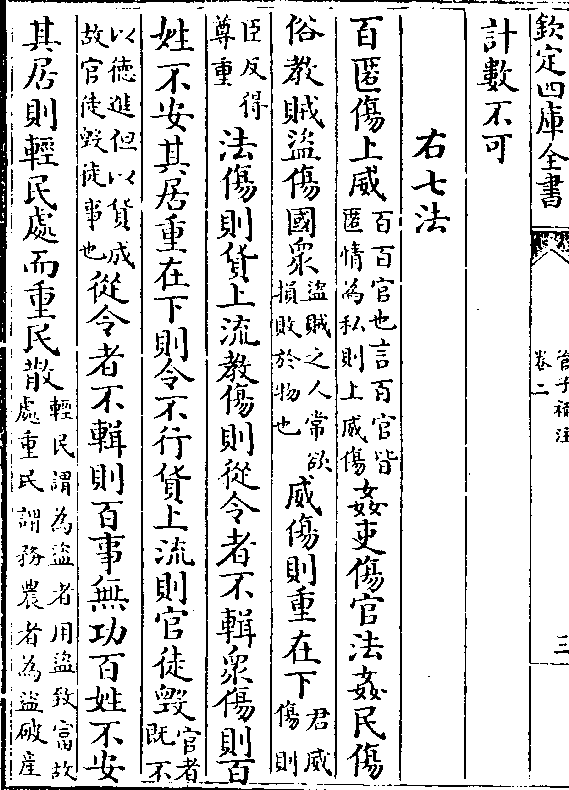 欽定四庫全書
管子補注
卷二
三
計數不可
右七法
百匿傷上威百百官也言百官皆匿情為私則上威傷姦吏傷官法姦民傷
俗教賊盜傷國衆盜賊之人常欲損敗於物也威傷則重在下君威傷則
臣反得尊重法傷則貨上流教傷則從令者不輯衆傷則百
姓不安其居重在下則令不行貨上流則官徒毀官者既不
以德進但以貨成故官徒毀徒事也從令者不輯則百事無功百姓不安
其居則輕民處而重民散輕民謂為盜者用盜致富故處重民謂務農者為盜破産